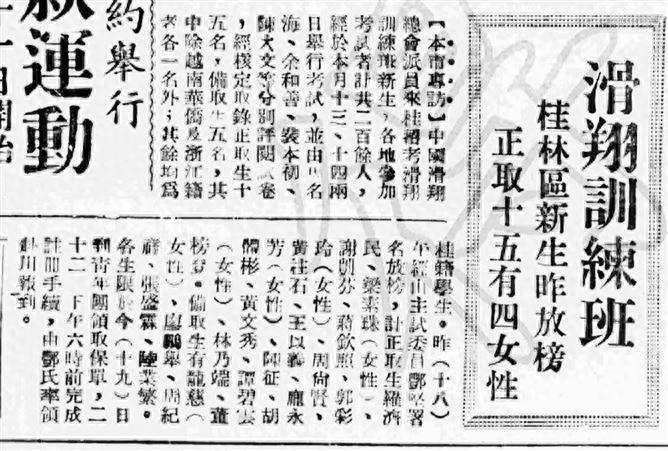 滑翔訓練班
桂林區新生昨放榜
正取十五有四女性
【本市專訪】中國滑翔
總會派員來桂招考滑翔
訓練班新生,各地參加
考試者計共二百餘人,
經於本月十三、十四兩
日舉行考試,並由
海、余和善、裴本初、
陳大文等分別評閱試卷
,經核定取錄正取生十
五名,備取生五名,其
中除越南華僑及浙江籍
者各一名外;其餘均爲
桂籍學生。昨(十八)
午經由主試委員鄧堅署
名放榜,計正取生羅濟
民、梁素珠(女性)、
謝剛芬、蔣欽照、郭彩
玲(女性)、周尙賢、
黃柱石、王以義、龐永
芳(女性)、陳征、胡
體彬、黃文秀、譚碧雲
(女性)、林乃端、董
榜。備取生有龍慈(
女性)、廖鵬舉、周紀
、張盛霖、陸業繁。
各生限於今(十九)日
到青年團領取保單,二
十二 下午六時前完成
註冊手續,由鄧氏率領
赴川報到。
約舉行
運動
日開始